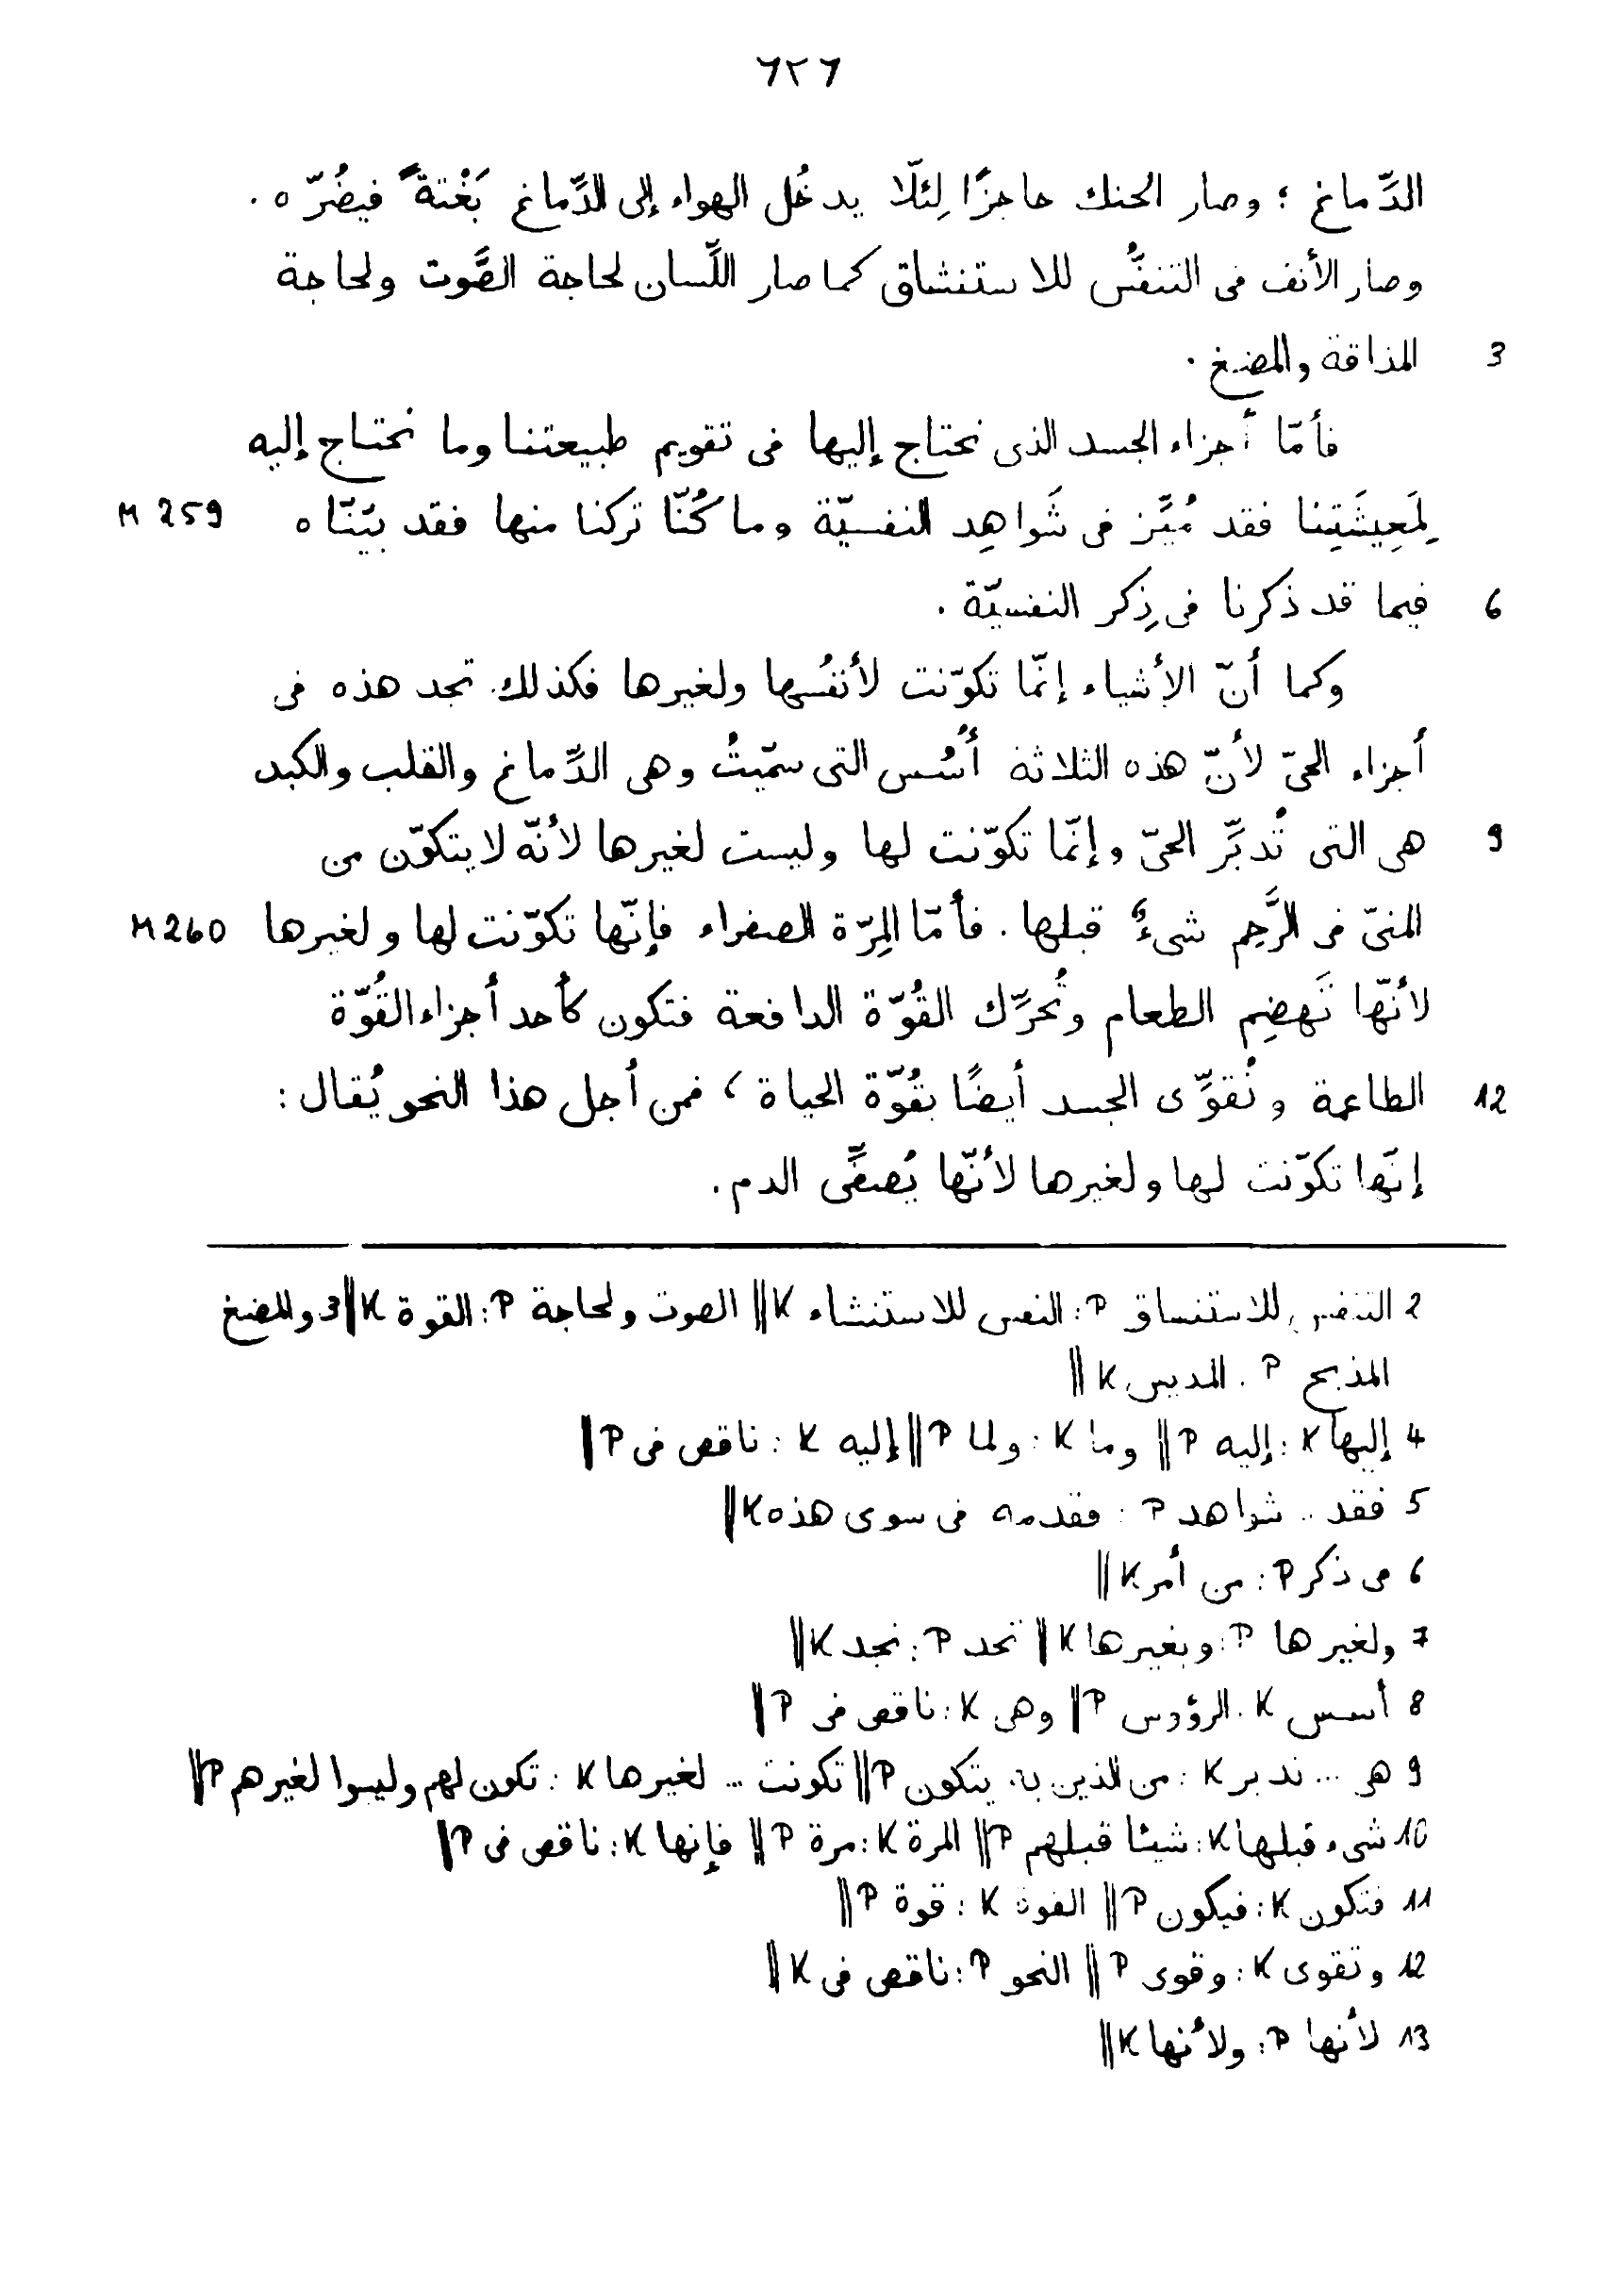 ٦٢٦
الدِّماغ ؛ وصار الحنك حاجزًا لِئلّا يدخُل الهواء إلى الدِّماغ بَغْتةً فيضُرّه .
وصار الأنف فى التنفُّس للاستنشاق كما صار اللِّسان لحاجة الصَّوت ولحاجة
3 المذاقة والمضغ .
فأمّا أجزاء الجسد الذى نحتاج إليها فى تقويم طبيعتنا وما نحتاج إليه
لِمَعِيشَتِنا فقد مُيِّز فى شَواهِد النفسيّة وما كُنّا تركنا منها فقد بيّنّاه M 259
6 فيما قد ذكرنا فى ذِكر النفسيّة .
وكما أنّ الأشياء إنّما تكوّنت لأنفُسها ولغيرها فكذلك تجد هذه فى
أجزاء الحىّ لأنّ هذه الثلاثة أُسُس التى سمّيتُ وهى الدِّماغ والقلب والكبد
9 هى التى تُدبِّر الحىّ وإنّما تكوّنت لها وليست لغيرها لأنّه لا يتكوّن من
المنىّ فى الرَّحِم شىءٌ قبلها . فأمّا المِرّة الصفراء فإنّها تكوّنت لها ولغيرها M 260
لأنّها تَهضِم الطعام وتُحرِّك القُوّة الدافعة فتكون كأحد أجزاء القُوّة
12 الطاعمة وتُقوِّى الجسد أيضًا بقُوّة الحياة ، فمن أجل هذا النحو يُقال :
إنّها تكوّنت لها ولغيرها لأنّها يُصفِّى الدم .
2 التنفس للاستنساق P : النفس للاستنشاء K || الصوت ولحاجة P : القوة K || 3 والمضغ
المذبح P . المديس K ||
4 إليها K : إليه P || وما K : ولما P || إليه K : ناقص فى P ||
5 فقد .. شواهد P : فقدمه فى سوى هذه K ||
6 فى ذكر P : من أمر K ||
7 ولغيرها P : وبغيرها K || تحد P : نجد K ||
8 أسس K . الرؤوس P || وهى K : ناقص فى P ||
9 هى ... تدبر K : من الذين به يتكون P || تكونت .. لغيرها K : تكون لهم وليسوا لغيرهم P ||
10 شىء قبلها K : شيئا قبلهم P || المرة K : مرة P || فإنها K : ناقص فى P ||
11 فتكون K : فيكون P || القوة K : قوة P ||
12 وتقوى K : وقوى P || النحو P : ناقص فى K ||
13 لأنها P : ولأنها K ||